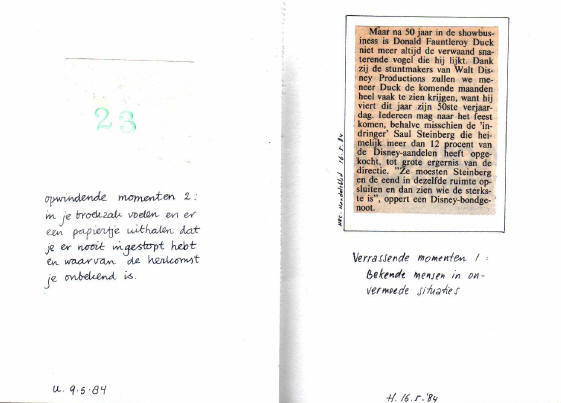 23
opwindende momenten 2:
in je broekzak voelen en er
een papiertje uithalen dat
je er nooit ingestopt hebt
en waarvan de herkomst
je onbekend is.
U. 9.5.84
Maar na 50 jaar in de showbus-
iness is Donald Fauntleroy Duck
niet meer altijd de verwaand sna-
terende vogel die hij lijkt. Dank
zij de stuntmakers van Walt Dis-
ney Productions zullen we me-
neer Duck de komende maanden
heel vaak te zien krijgen, want hij
viert dit jaar zijn 50ste verjaar-
dag. Iedereen mag naar het feest
komen, behalve misschien de 'in-
dringer' Saul Steinberg die hei-
melijk meer dan 12 procent van
de Disney-aandelen heeft opge-
kocht, tot grote ergernis van de
directie. "Ze moesten Steinberg
en de eend in dezelfde ruimte op-
sluiten en dan zien wie de sterks-
te is", oppert een Disney-bondge-
noot.
NRC Handelsblad 16.5.84
Verrassende momenten 1:
Bekende mensen in on-
vermoede situaties
H. 16.5.'84